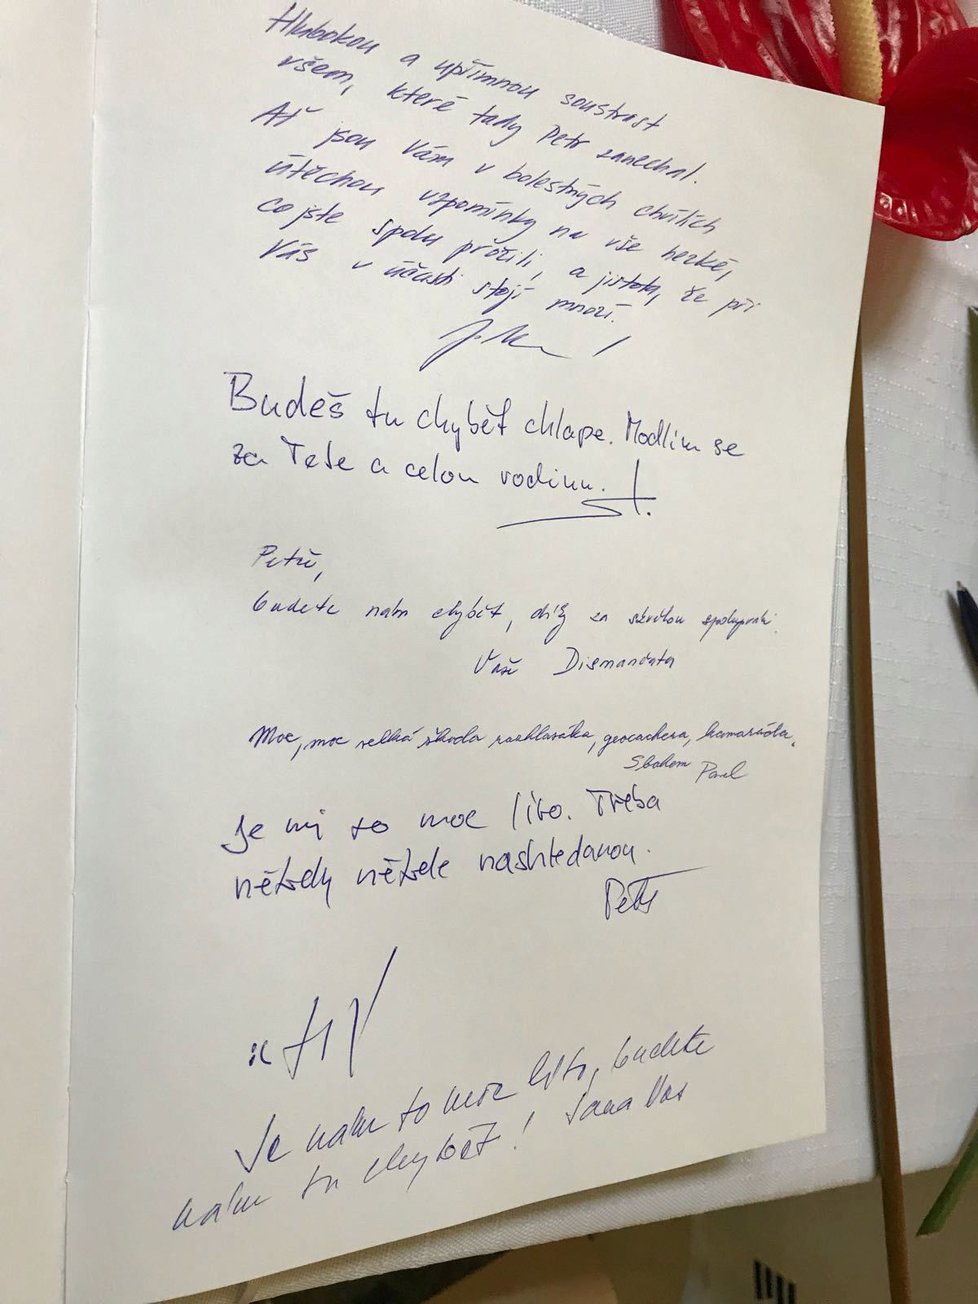 Hlubokou a upřímnou soustrast
všem, které tady Petr zanechal.
Ať jsou Vám v bolestných chvílích
útěchou vzpomínky na vše hezké,
co jste spolu prožili, a jistota, že při
Vás v účasti stojí mnozí.
Budeš tu chybět chlape. Modlím se
za Tebe a celou rodinu.
Petře,
budete nám chybět, díky za skvělou spolupráci.
Vaši Dismančata
Moc, moc velká škoda rozhlasáka, geocachera, kamaráda.
Sbohem Pavel
Je mi to moc líto. Třeba
někdy někde nashledanou.
Petr
:(
Je nám to moc líto, budete
nám tu chybět! Jana